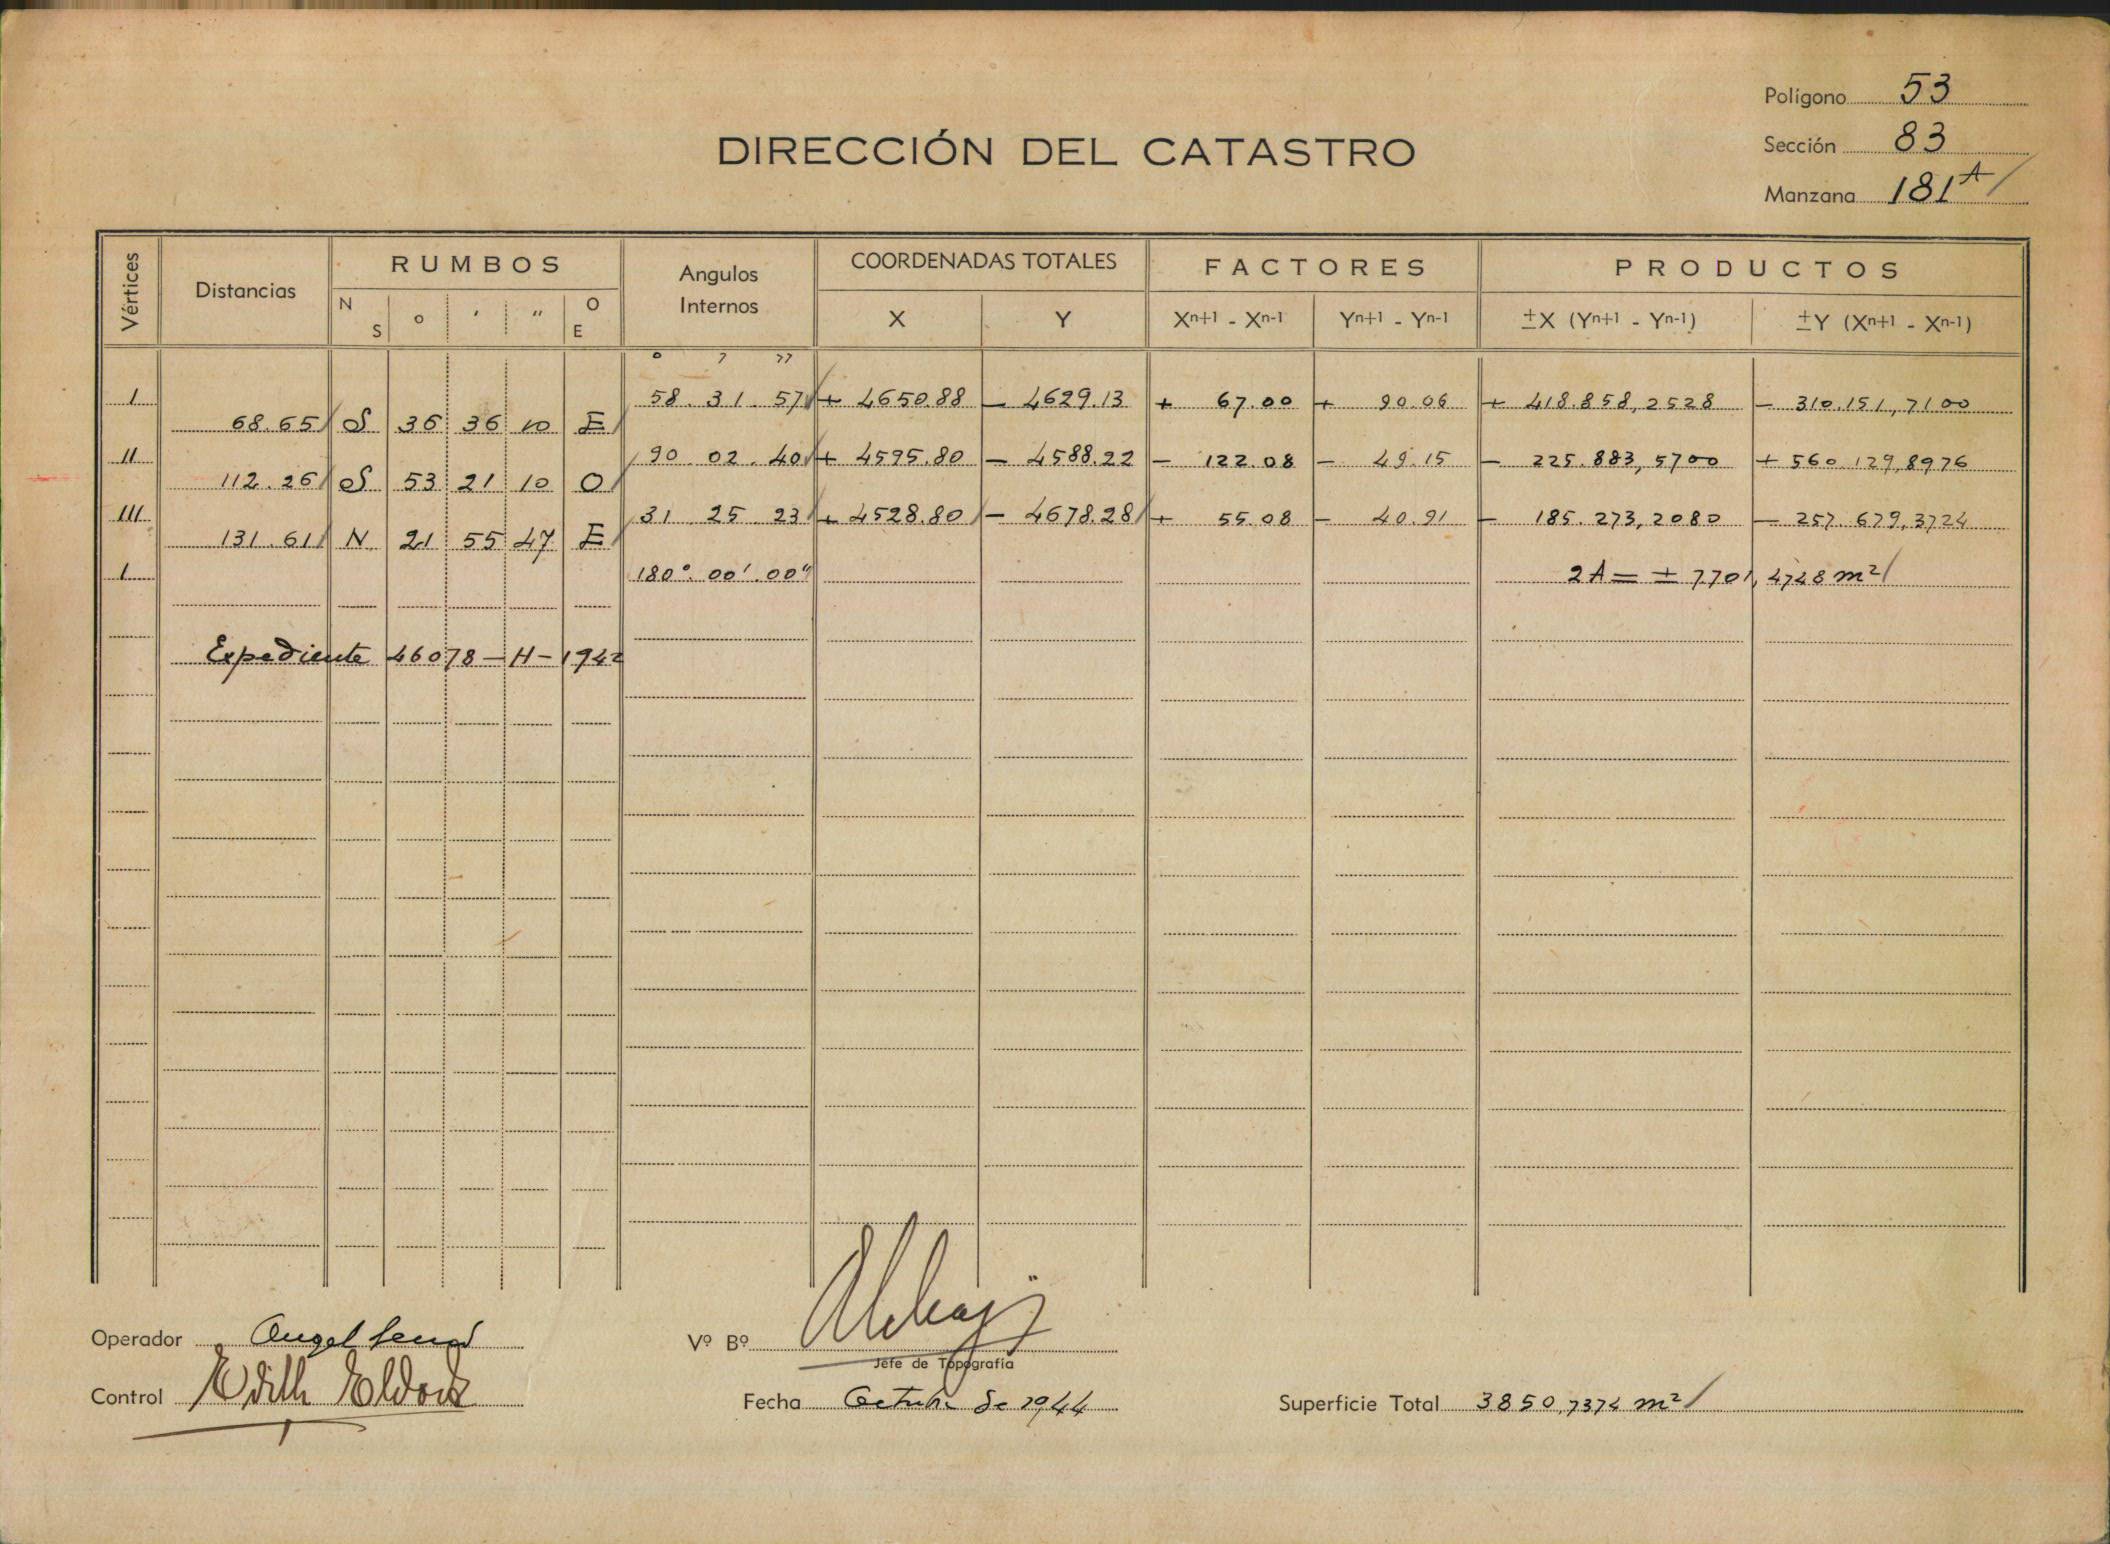 Polígono 53
Sección 83
Manzana 181A
DIRECCIÓN DEL CATASTRO
Vértices Distancias RUMBOS Angulos Internos COORDENADAS TOTALES FACTORES PRODUCTOS
N S o ' " O E X Y Xn+1 - Xn-1 Yn+1 - Yn-1 ±X (Yn+1 - Yn-1) ±Y (Xn+1 - Xn-1)
° ' "
I 58 31 57 + 4650.88 − 4629.13 + 67.00 + 90.06 + 418.858,2528 − 310.151,7100
68.65 S 36 36 10 E
II 90 02 40 + 4595.80 − 4588.22 − 122.08 − 49.15 − 225.883,5700 + 560.129,8976
112.26 S 53 21 10 O
III 31 25 23 + 4528.80 − 4678.28 + 55.08 − 40.91 − 185.273,2080 − 257.679,6624
131.61 N 21 55 47 E
I 180° 00' 00" 2A = ± 7701,4748 m²
Expediente 46078-H-1942
Operador Angel
Vº Bº
Jefe de Topografía
Control Edith
Fecha Octubre de 1944
Superficie Total 3850,7374 m²